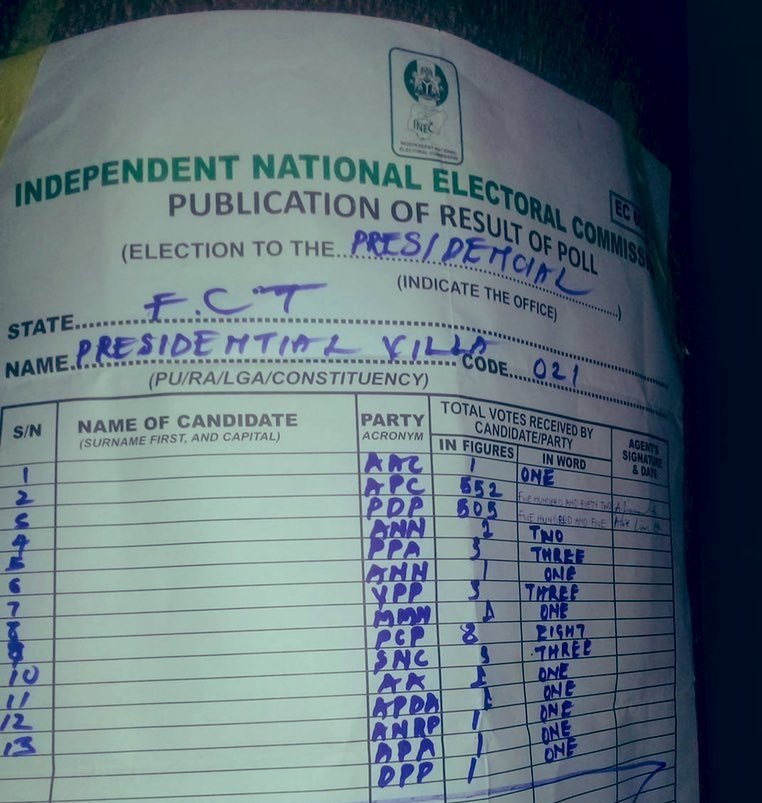 INEC
INDEPENDENT NATIONAL
ELECTORAL COMMISSION
INDEPENDENT NATIONAL ELECTORAL COMMISS
EC
PUBLICATION OF RESULT OF POLL
(ELECTION TO THE PRESIDENCIAL )
(INDICATE THE OFFICE)
STATE F.C.T
NAME PRESIDENTIAL VILLA CODE 021
(PU/RA/LGA/CONSTITUENCY)
S/N NAME OF CANDIDATE (SURNAME FIRST, AND CAPITAL) PARTY ACRONYM TOTAL VOTES RECEIVED BY CANDIDATE/PARTY IN FIGURES IN WORD AGENT'S SIGNATURE & DATE
1 AAC 1 ONE
2 APC 552 FIVE HUNDRED AND FIFTY TWO
PDP 505 FIVE HUNDRED AND FIVE
4 ANN 2 TWO
5 PPA 3 THREE
6 ANN 1 ONE
7 YPP 3 THREE
8 MMN 1 ONE
PCP 8 EIGHT
10 SNC 3 THREE
11 AA 1 ONE
12 APDA 1 ONE
13 ANRP 1 ONE
APA 1 ONE
DPP 1